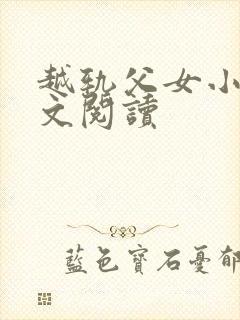 越軌父女小
文閱讀
藍色寶石憂郁